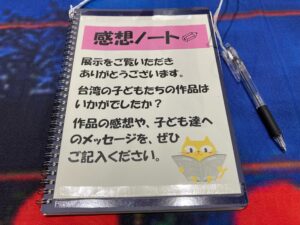 感想ノート
展示をご覧いただき
ありがとうございます。
台湾の子どもたちの作品は
いかがでしたか？
作品の感想や、子ども達へ
のメッセージを、ぜひ
ご記入ください。